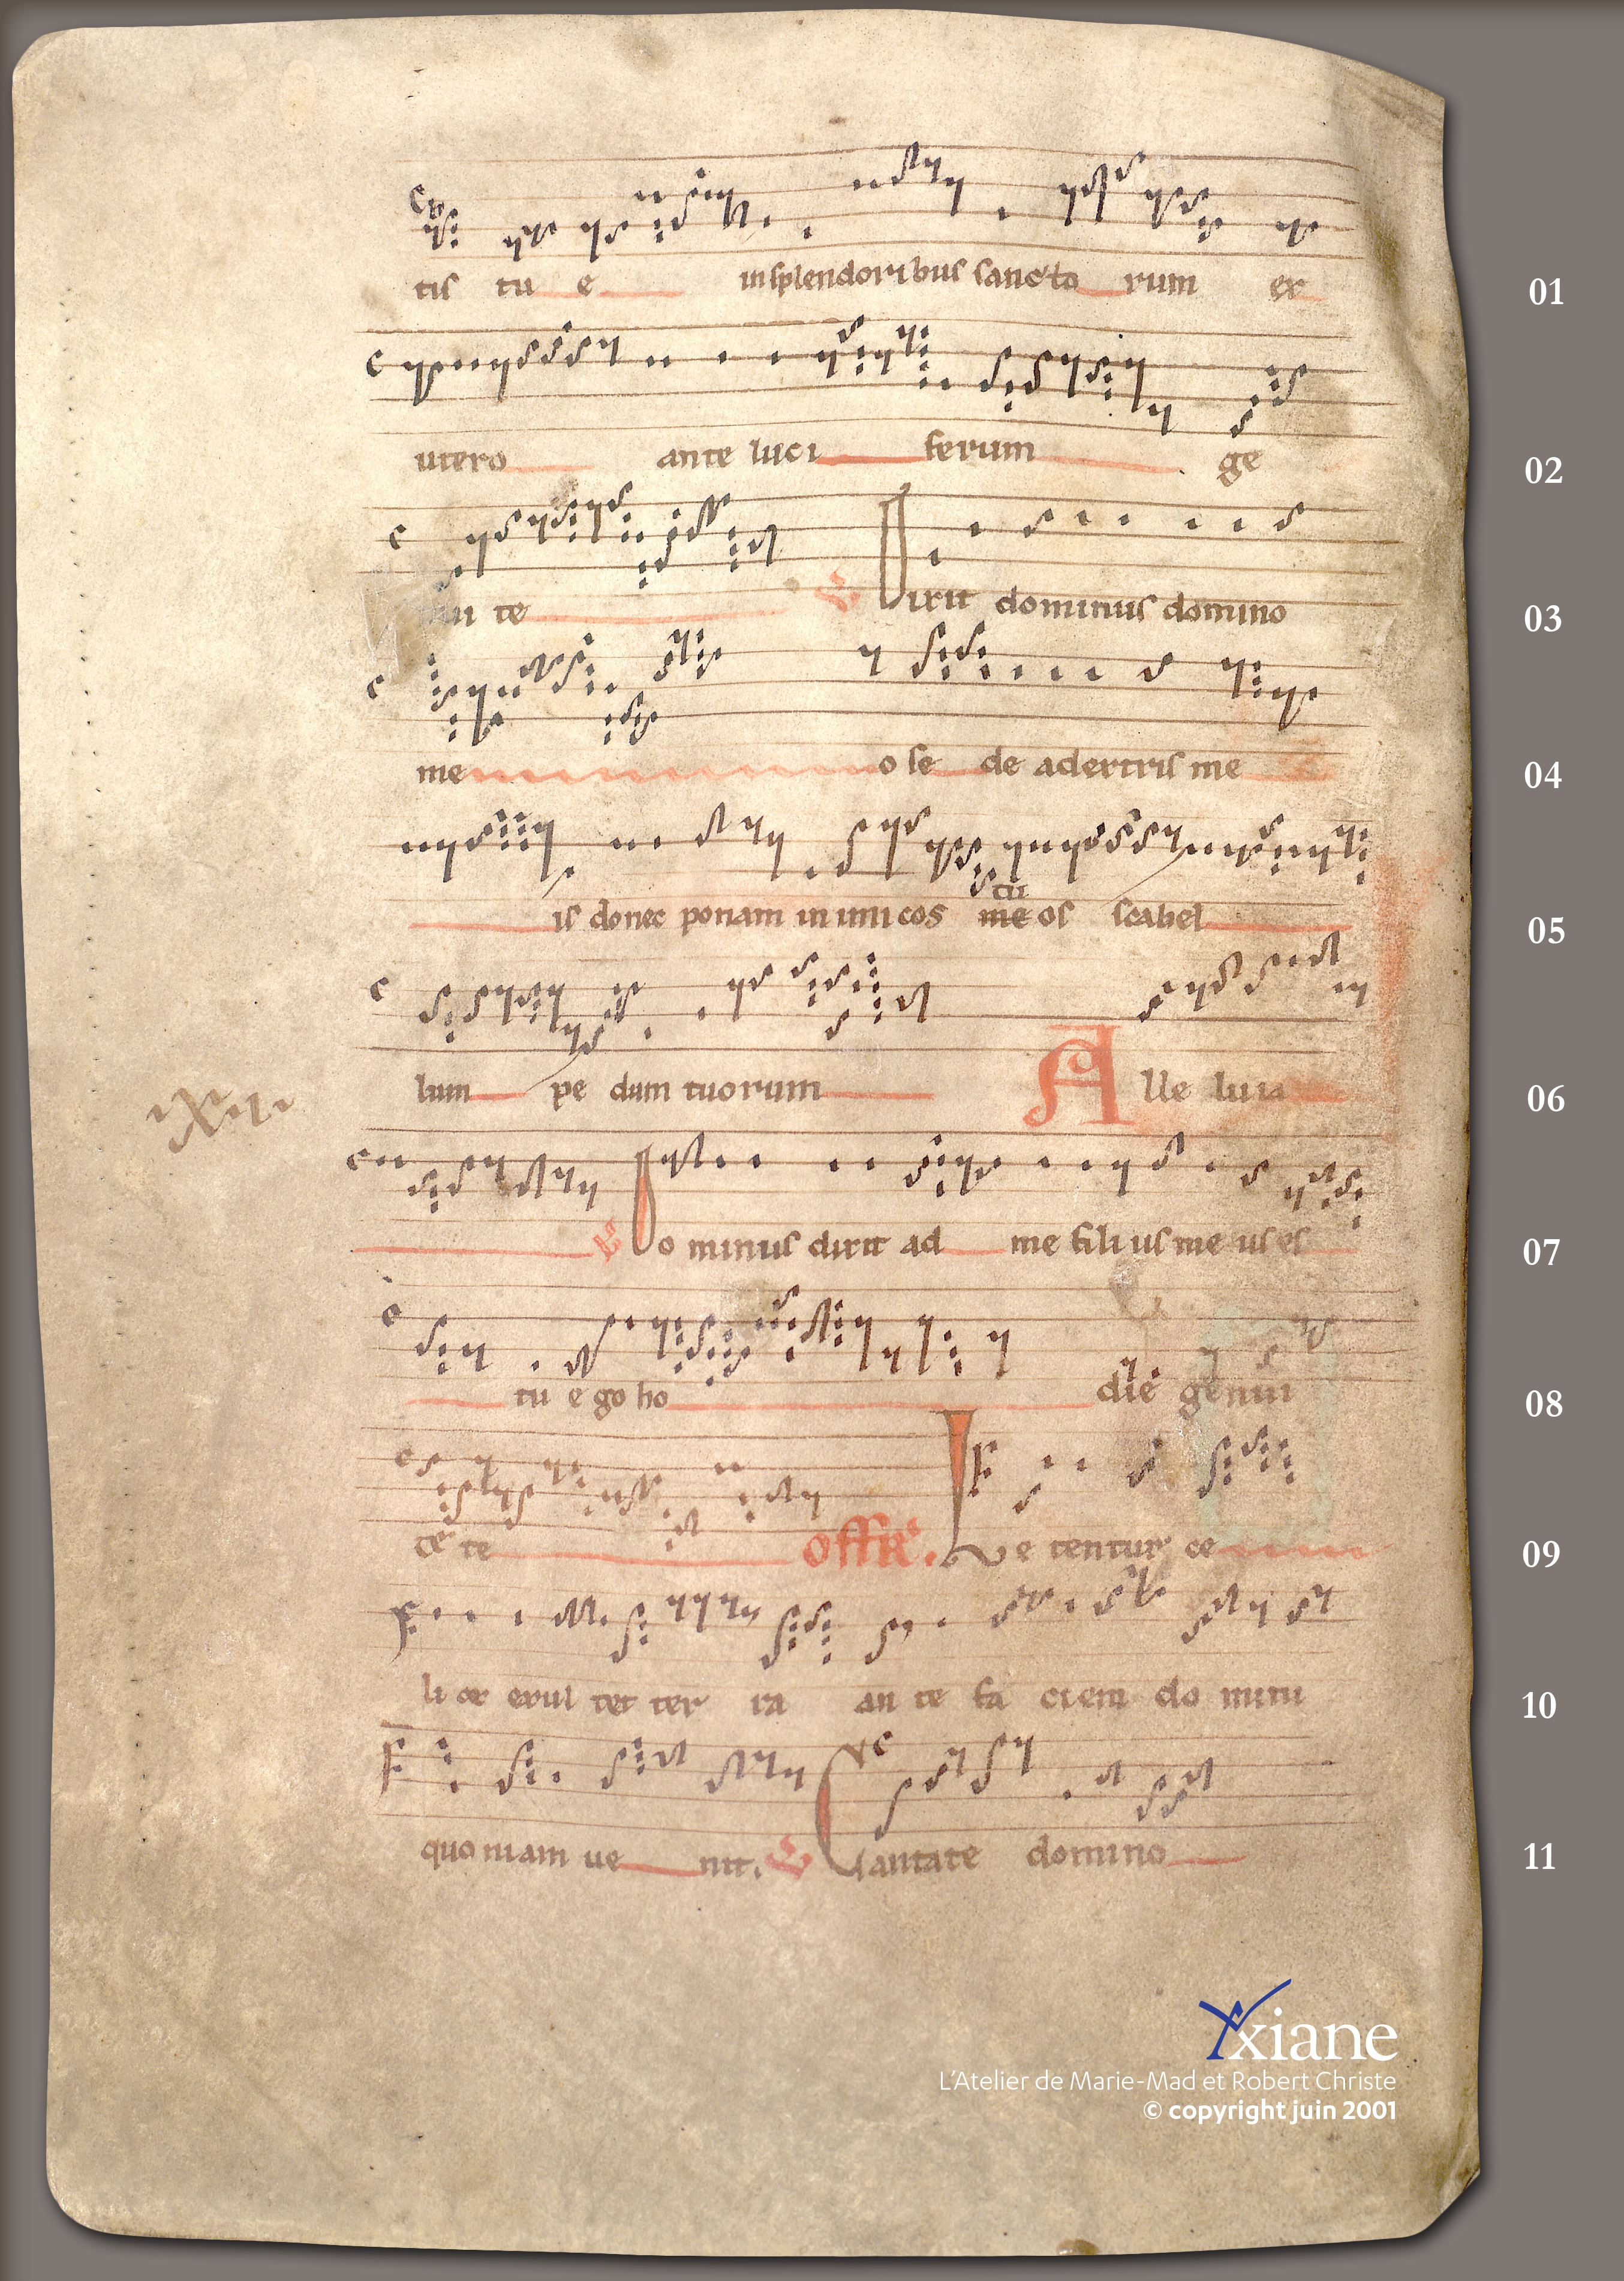 tis tu e in splendoribus sancto rum ex
01
utero ante luci ferum ge
02
nui te Dixit dominus domino
03
me o se de adextris me
04
tu
is donec ponam inimicos me os scabel
05
lum pe dum tuorum A lle luia
06
Do minus dixit ad me fili us me us es
07
tu e go ho die genui
08
te te offR. Le tentur ce
09
li et exul tet ter ra an te fa ciem do mini
10
quo niam ue nit. Cantate domino
11
xiane
L'Atelier de Marie-Mad et Robert Christe
© copyright juin 2001